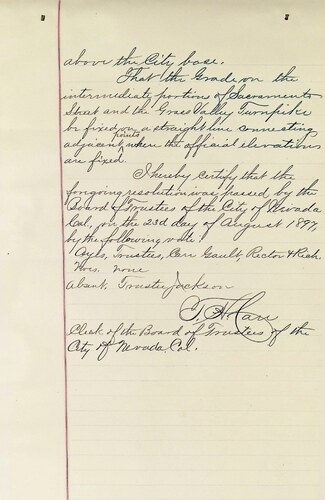 above the City base.
That the Grade on the
intermediate portion of Sacramento
Street and the Grass Valley Turnpike
be fixed on a straight line connecting
adjacent points when the official elevations
are fixed.
I hereby certify that the
foregoing resolution was passed by the
Board of Trustees of the City of Nevada
Cal, on the 23d day of August 1897,
by the following vote.
Ayes, Trustees, Carr Gault Rector & Rich.
Noes. none
absent. Trustee Jackson
T. H. Carr
Clerk of the Board of Trustees of the
City of Nevada Cal.